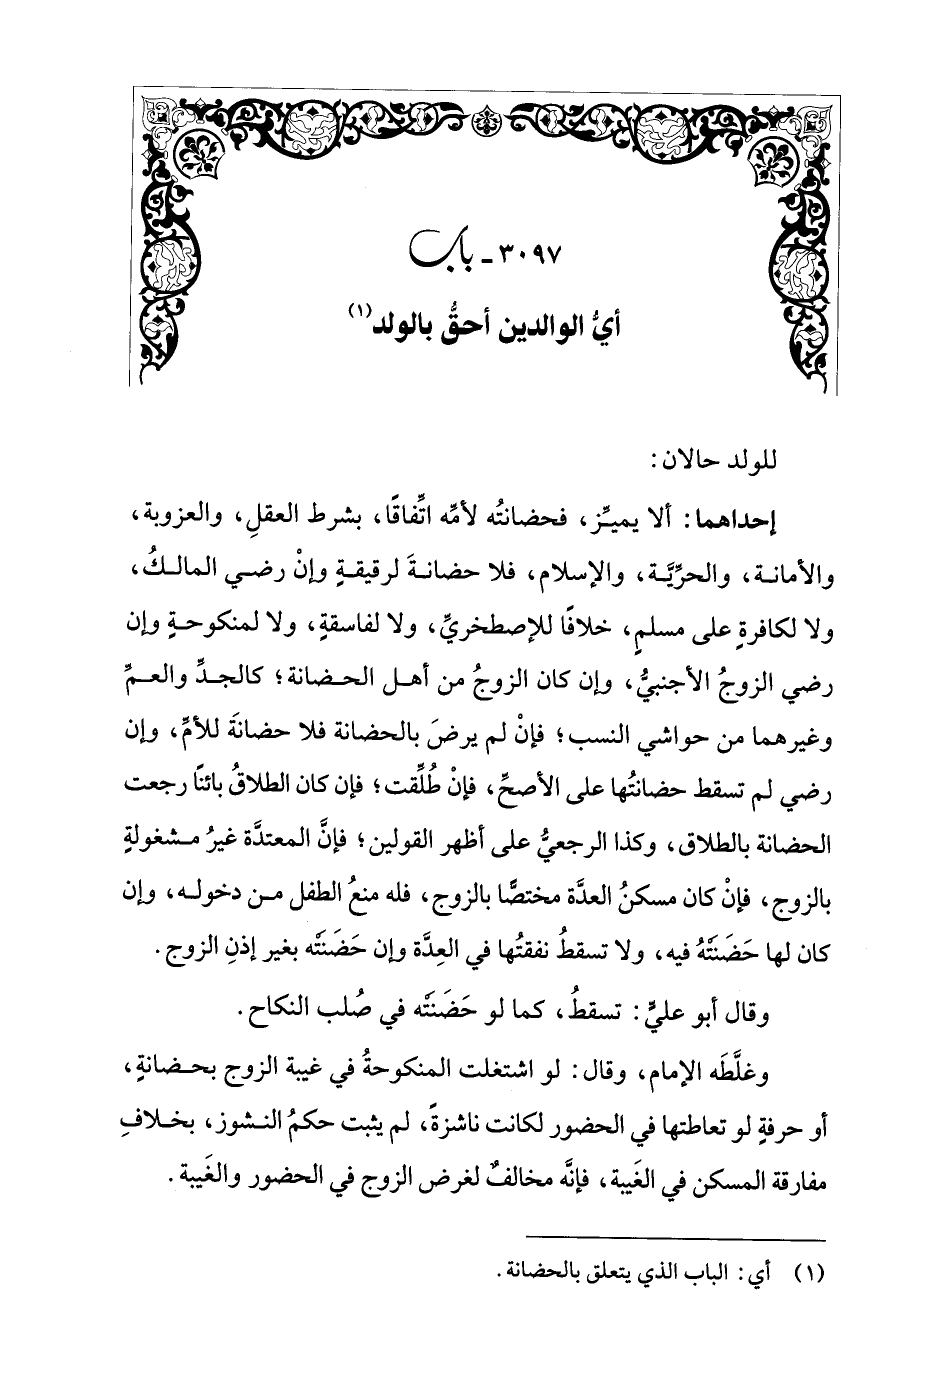 ٣٠٩٧ - باب
أيُّ الوالدين أحقُّ بالولد(١)
للولد حالان:
إحداهما: ألا يميِّز، فحضانتُه لأمِّه اتِّفاقًا، بشرط العقلِ، والعزوبة،
والأمانة، والحرِّيَّة، والإسلام، فلا حضانةَ لرقيقةٍ وإنْ رضي المالكُ،
ولا لكافرةٍ على مسلمٍ، خلافًا للإصطخريِّ، ولا لفاسقةٍ، ولا لمنكوحةٍ وإن
رضي الزوجُ الأجنبيُّ، وإن كان الزوجُ من أهل الحضانة؛ كالجدِّ والعمِّ
وغيرهما من حواشي النسب؛ فإنْ لم يرضَ بالحضانة فلا حضانةَ للأمِّ، وإن
رضي لم تسقط حضانتُها على الأصحِّ، فإنْ طُلِّقت؛ فإن كان الطلاقُ بائنًا رجعت
الحضانة بالطلاق، وكذا الرجعيُّ على أظهر القولين؛ فإنَّ المعتدَّة غيرُ مشغولةٍ
بالزوج، فإنْ كان مسكنُ العدَّة مختصًّا بالزوج، فله منعُ الطفل من دخوله، وإن
كان لها حَضَنَتْهُ فيه، ولا تسقطُ نفقتُها في العِدَّة وإن حَضَنَتْه بغير إذنِ الزوج.
وقال أبو عليٍّ: تسقطُ، كما لو حَضَنَتْه في صُلب النكاح.
وغلَّطَه الإمام، وقال: لو اشتغلت المنكوحةُ في غيبة الزوج بحضانةٍ،
أو حرفةٍ لو تعاطتها في الحضور لكانت ناشزةً، لم يثبت حكمُ النشوز، بخلافِ
مفارقة المسكن في الغَيبة، فإنَّه مخالفٌ لغرض الزوج في الحضور والغَيبة.
(١) أي: الباب الذي يتعلق بالحضانة.